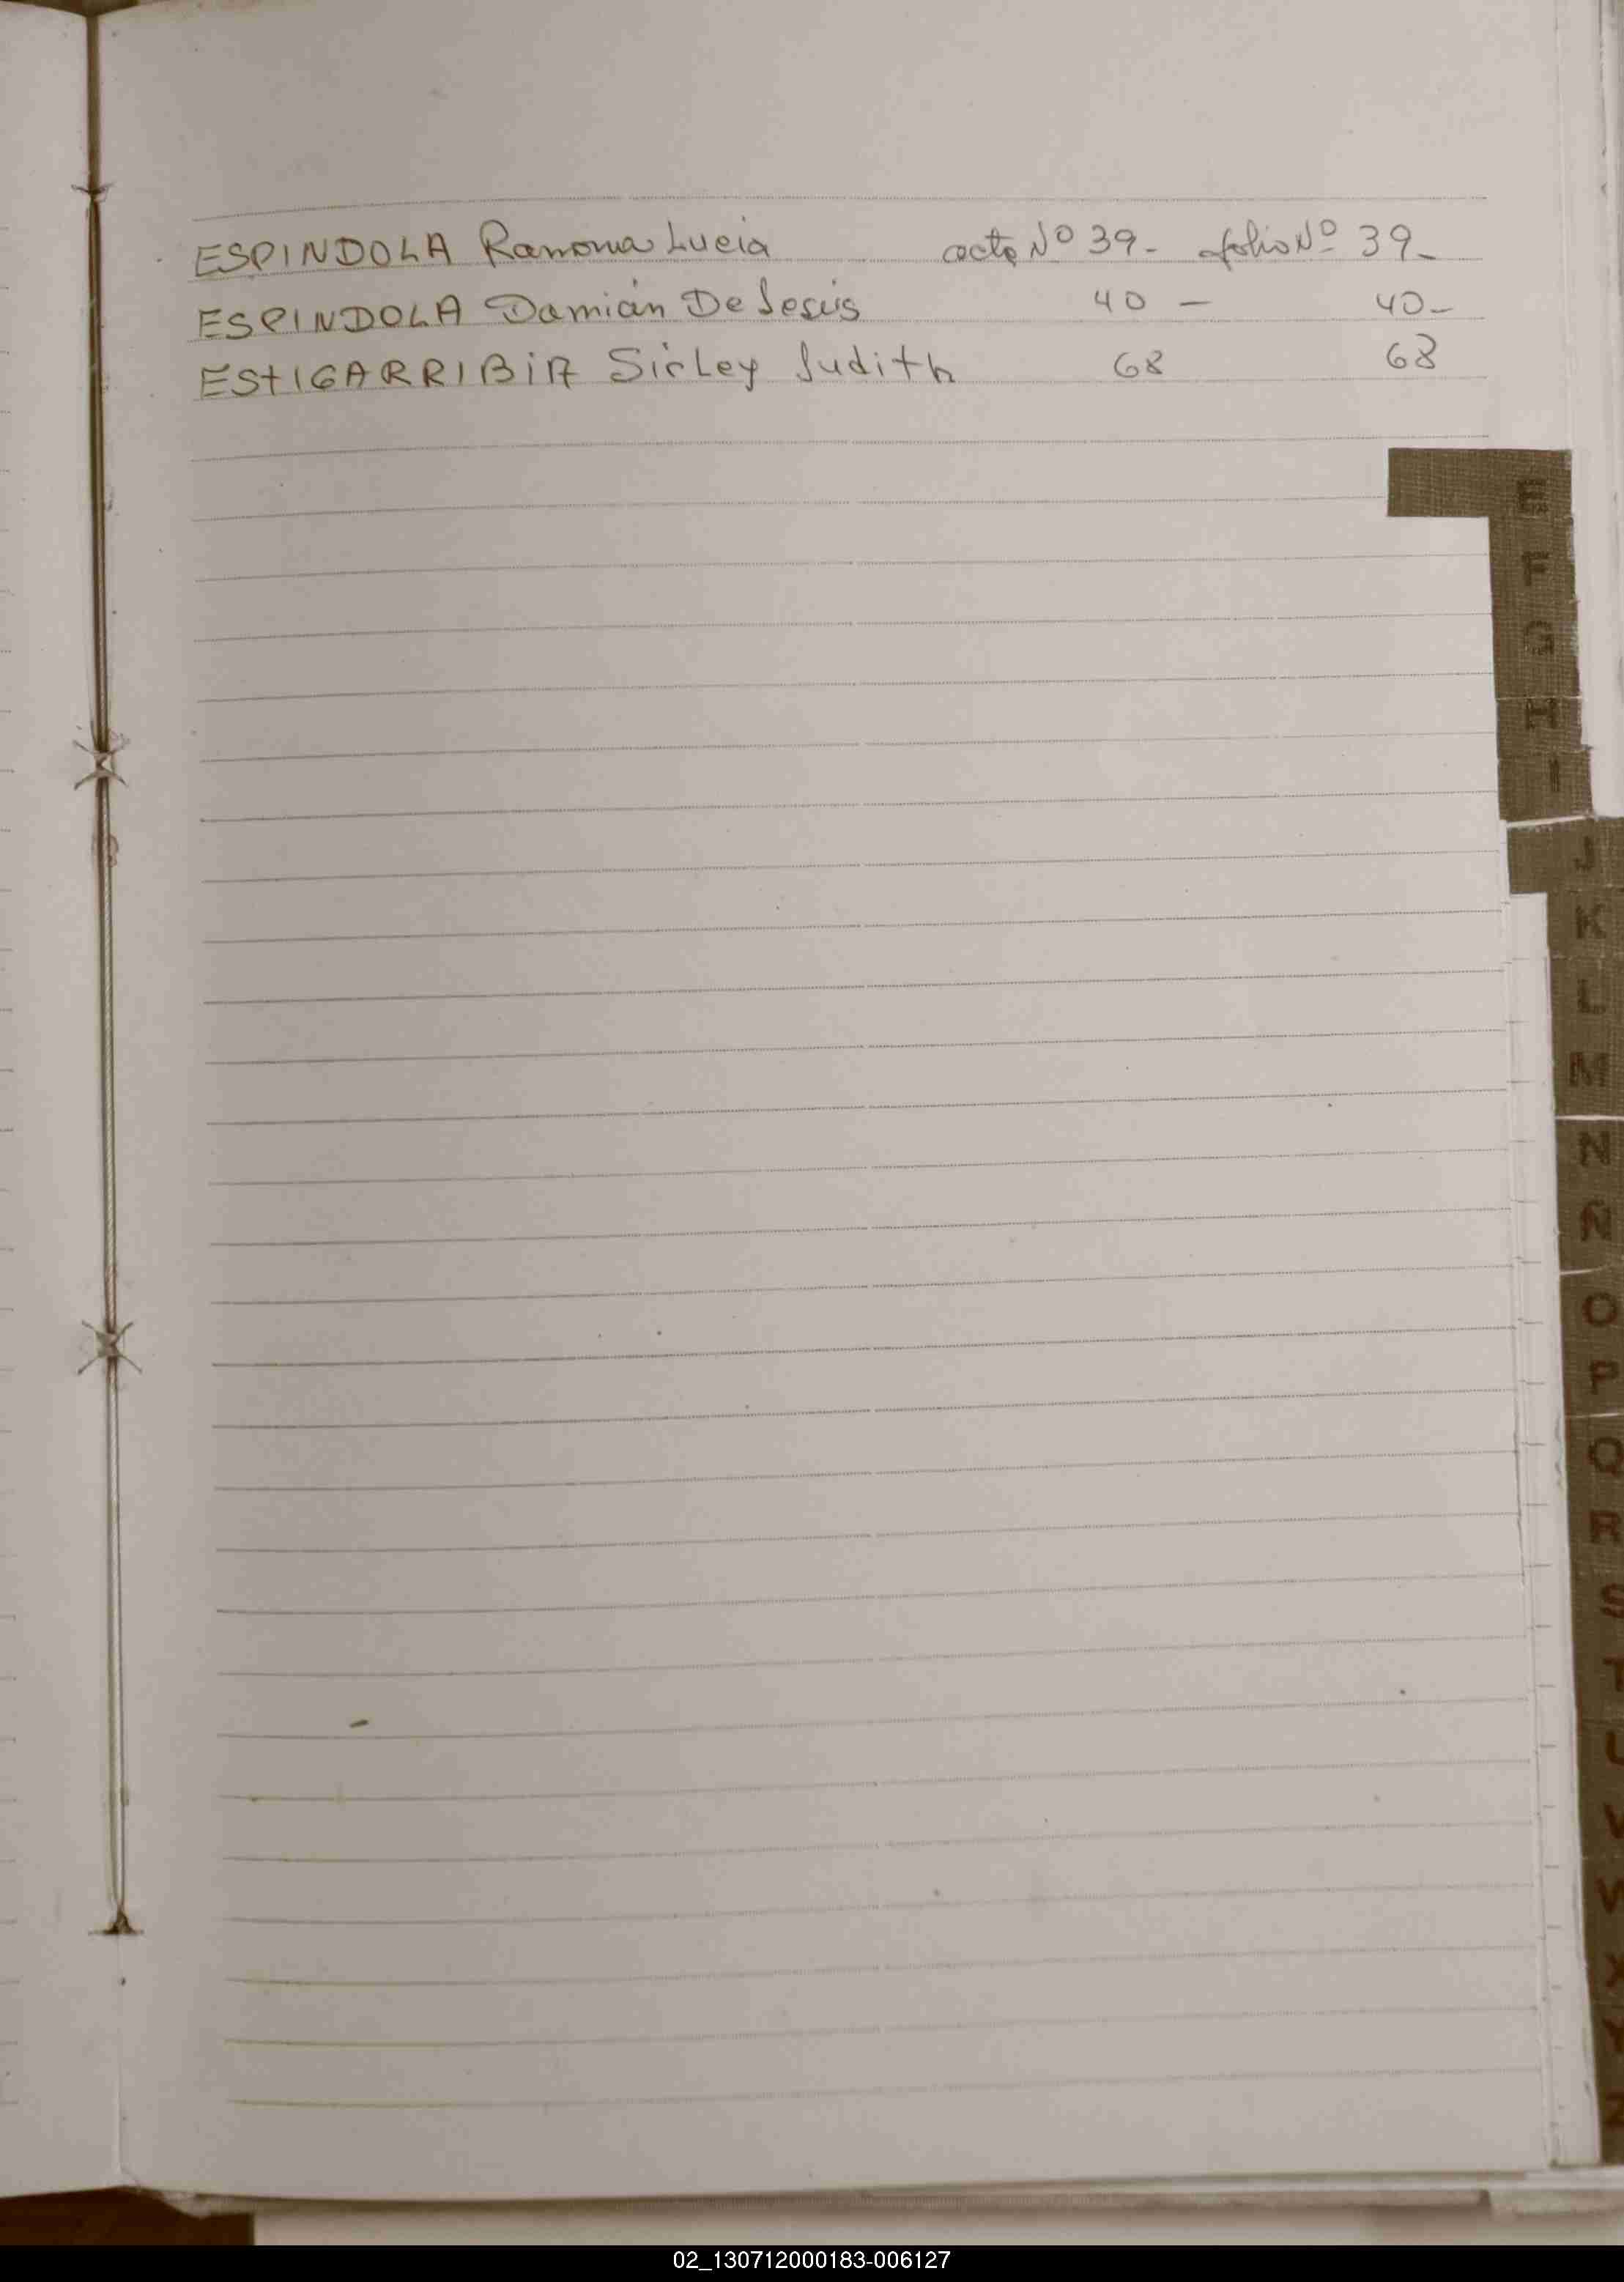 ESPINDOLA Ramona Lucia acta Nº 39- folio Nº 39-
ESPINDOLA Damián De Jesús 40 - 40-
EStIGARRIBiA Sirley Judith 68 68
E
F
G
H
I
J
K
L
M
N
Ñ
O
P
Q
R
S
T
U
V
W
X
Y
Z
02_130712000183-006127